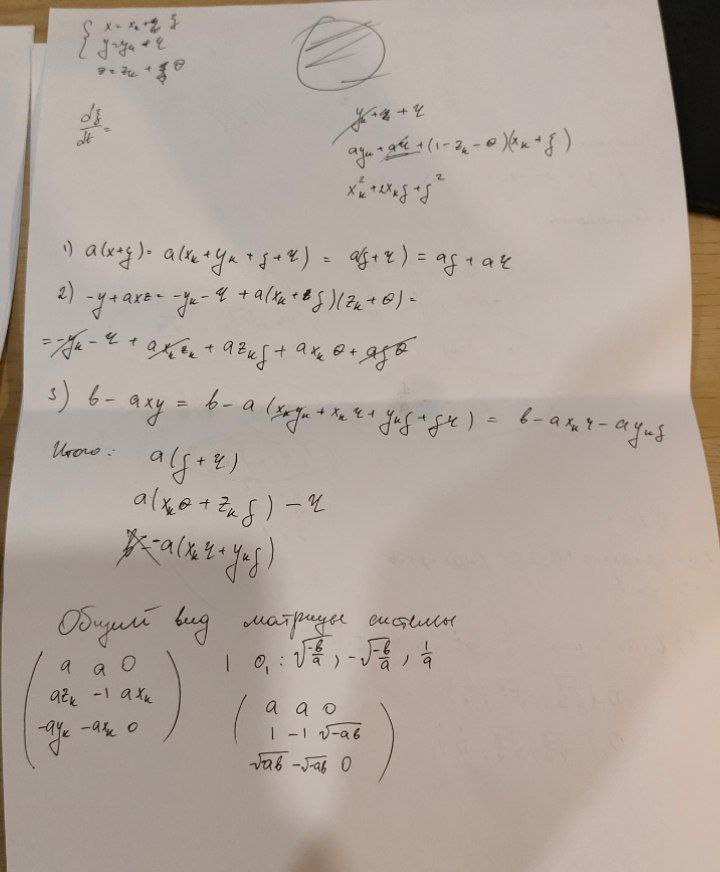 x = xₖ + ξ
y = yₖ + η
z = zₖ + θ
dξ/dt =
yₖ + η
ayₖ + aη + (1 - zₖ - θ)(xₖ + ξ)
xₖ² + 2xₖξ + ξ²
1) a(x+y) = a(xₖ + yₖ + ξ + η) = a(ξ + η) = aξ + aη
2) -y + axz = -yₖ - η + a(xₖ + ξ)(zₖ + θ) =
= -yₖ - η + axₖzₖ + azₖξ + axₖθ + aξθ
3) b - axy = b - a(xₖyₖ + xₖη + yₖξ + ξη) = b - axₖη - ayₖξ
Итого: a(ξ + η)
a(xₖθ + zₖξ) - η
-a(xₖη + yₖξ)
Общий вид матрицы системы
( a a 0
azₖ -1 axₖ
-ayₖ -axₖ 0 )
1 O₁ : √(-b/a), -√(-b/a), 1/a
( a a 0
1 -1 √-ab
√-ab -√-ab 0 )